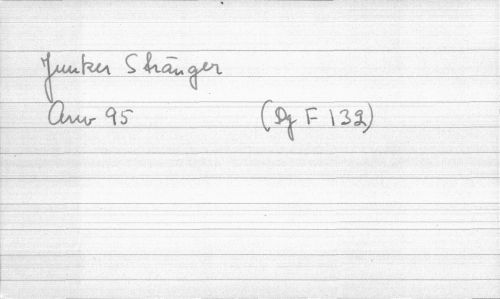 Junker Stränger
Arw 95 (Dg F 132)